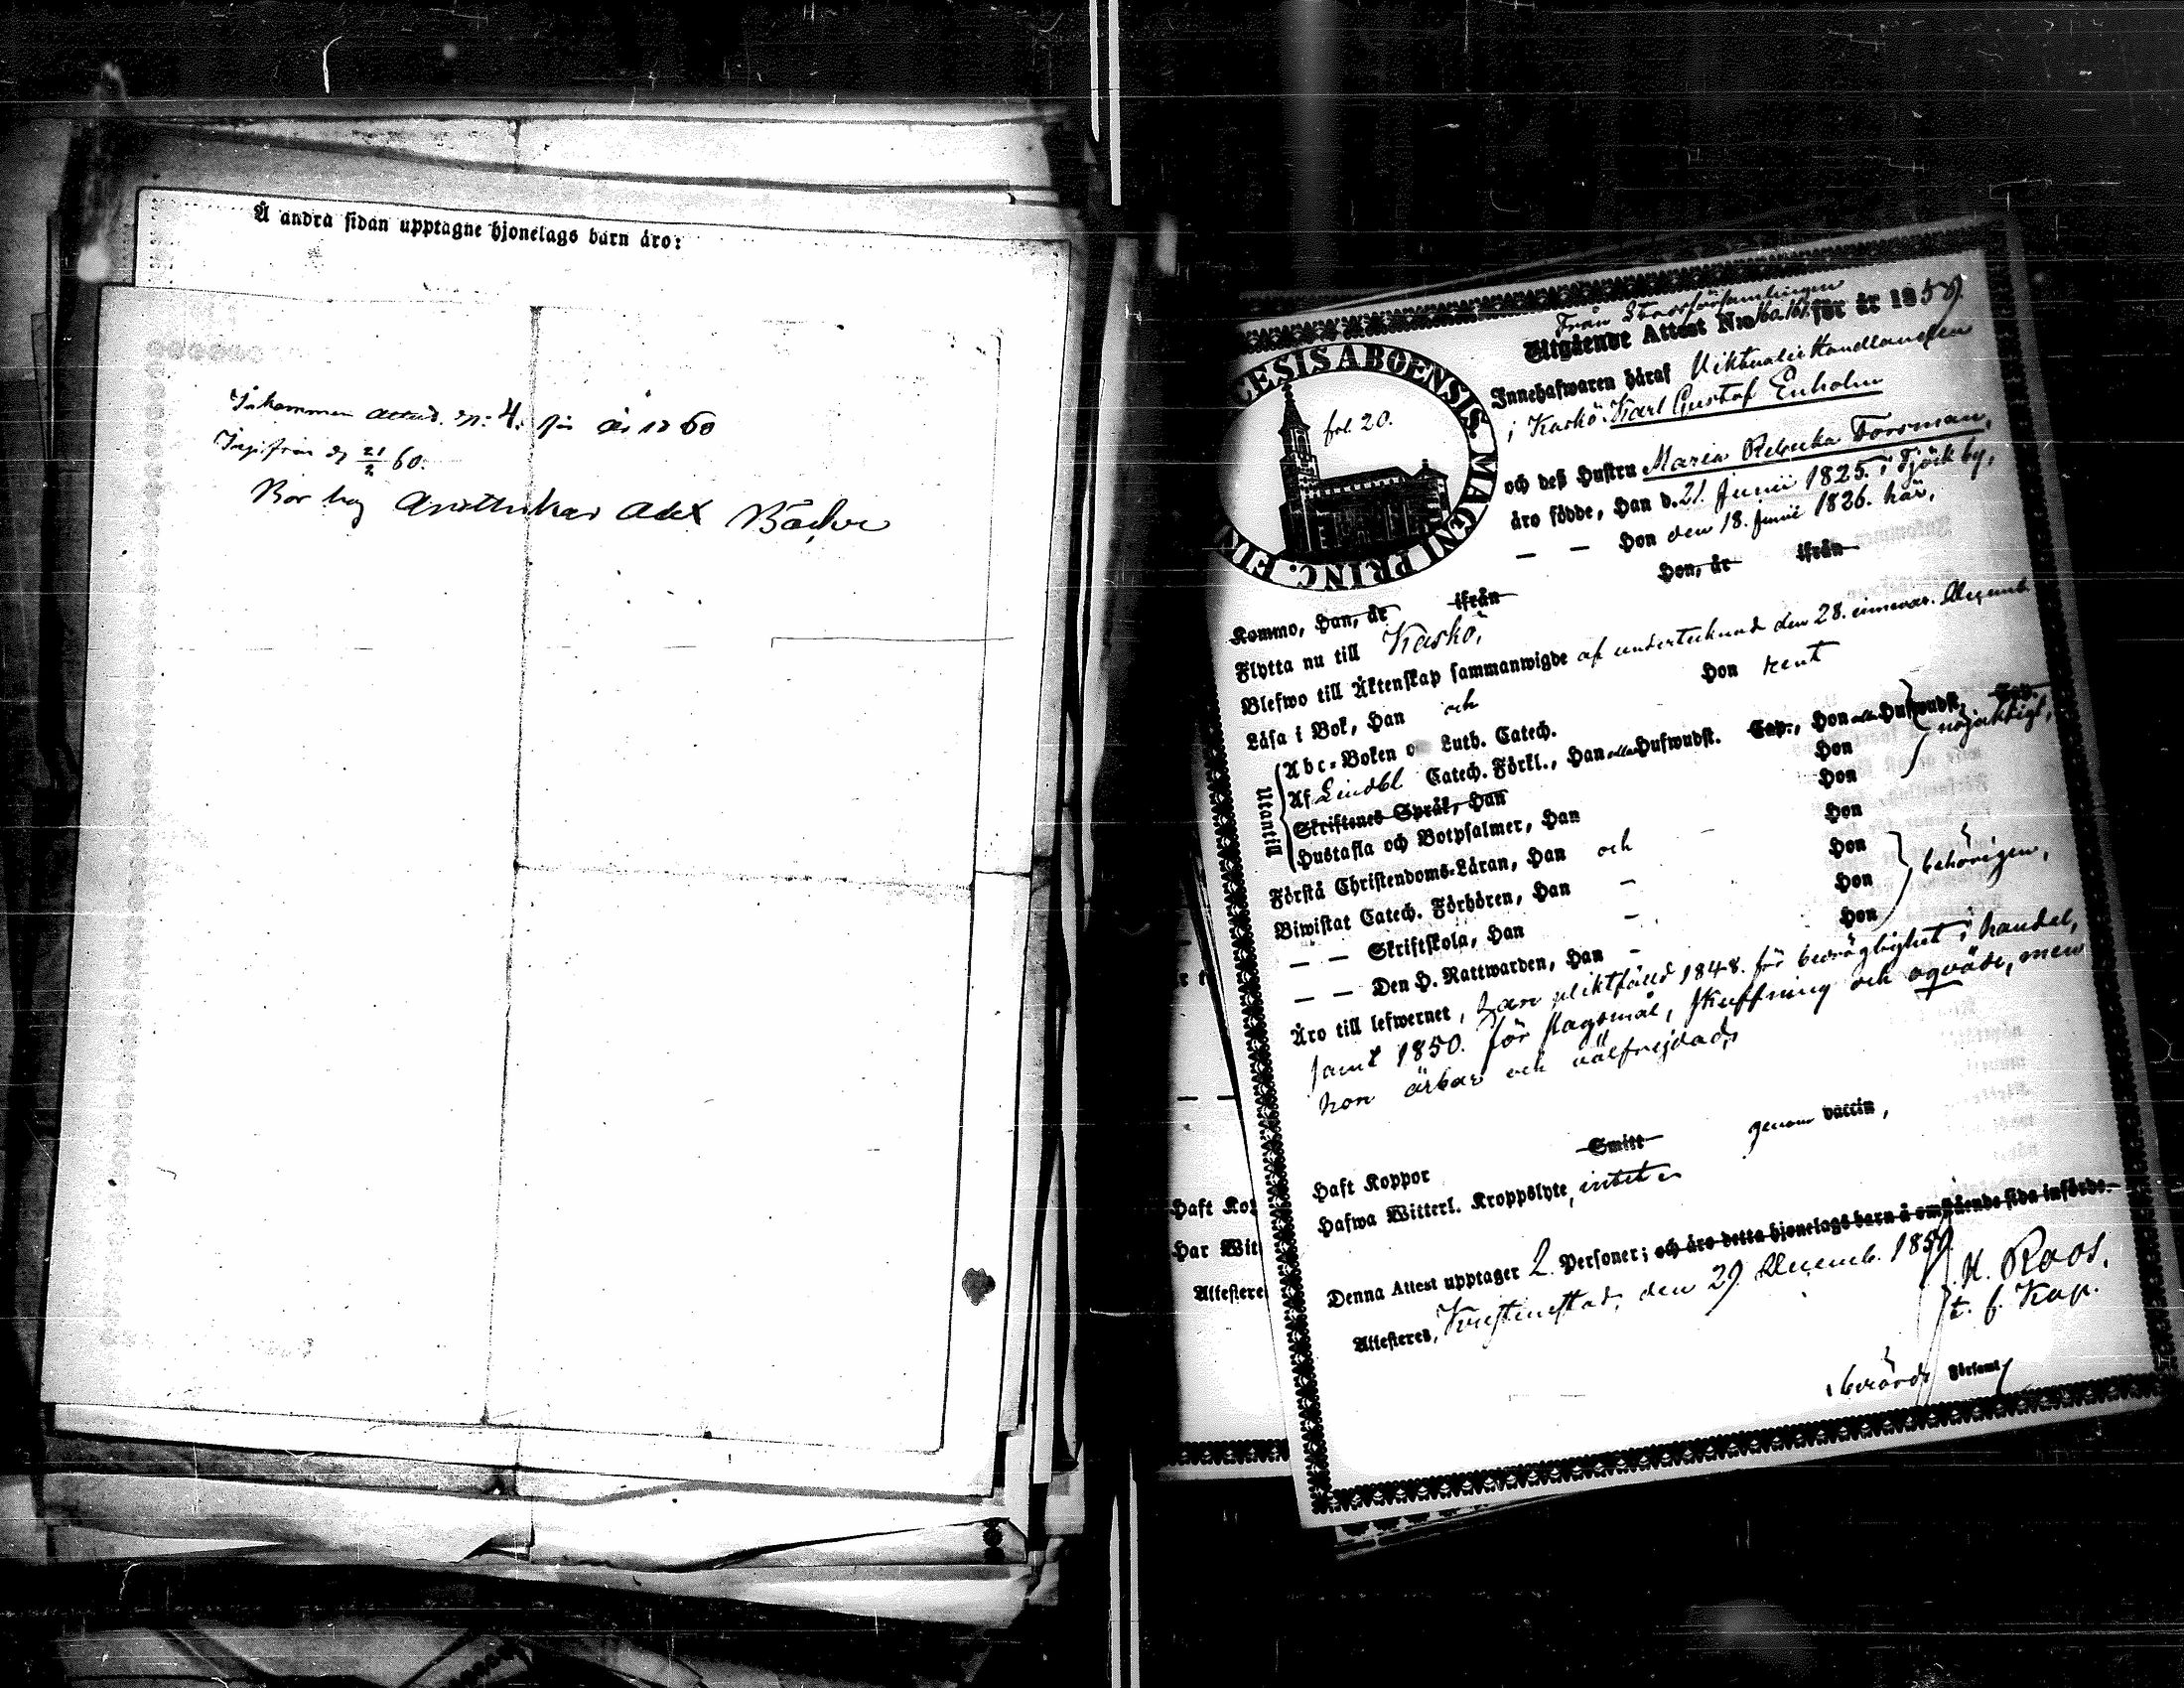 Å andra sidan upptagne hjonelags barn äro:
Inkommen attest. N: 4. för år 1860
60.
Bor hos Alex
Från Stadsförsamlingen
Utgående Attest N:o 160.161. för år 1859.
CESIS ABOENSIS. MAGNI PRINC. FIN
fol. 20.
Innehafwaren häraf Viktualie Handlanden
i Kaskö Karl Gustaf Enholm
och deß Hustru Maria Rebecka Forsman,
äro födde, Han d. 21. Junii 1825. i Tjöckby,
— — Hon den 18. Junii 1836. här,
Kommo, Han, år ifrån Hon, år ifrån
Flytta nu till Kaskö,
Blefwo till Äktenskap sammanwigde af undertecknad den 28. innevar. Decemb.
Läsa i Bok, Han och Hon rent
Utantill
Abc-Boken o Luth. Catech.
Af Lindbl Catech. Förkl., Han Hufwudst. Cap., Hon Hufwudst. Cap.
Skriftenes Språk, Han Hon nöjaktigt,
Hustafla och Botpsalmer, Han Hon
Förstå Christendoms-Läran, Han och Hon
Biwistat Catech. Förhören, Han — Hon
— — Skriftskola, Han — Hon behörigen,
— — Den H. Nattwarden, Han - Hon
Äro till lefwernet, han pliktfälld 1848. för bedräglighet i handel,
samt 1850. för slagsmål, skuffning och oqväde, men
hon ärbar och välfrejdad,
Haft Koppor Smitt genom vaccin,
Hafwa Witterl. Kroppslyte, intet
Denna Attest upptager 2. Personer; och äro detta hjonelags barn å omstående sida införde.
Attesteras, Kristinestad, den 29. Decemb. 1859.
K. Roos.
t. f. Kap.
Församl
Haft Kop
Har Wit
Attestere